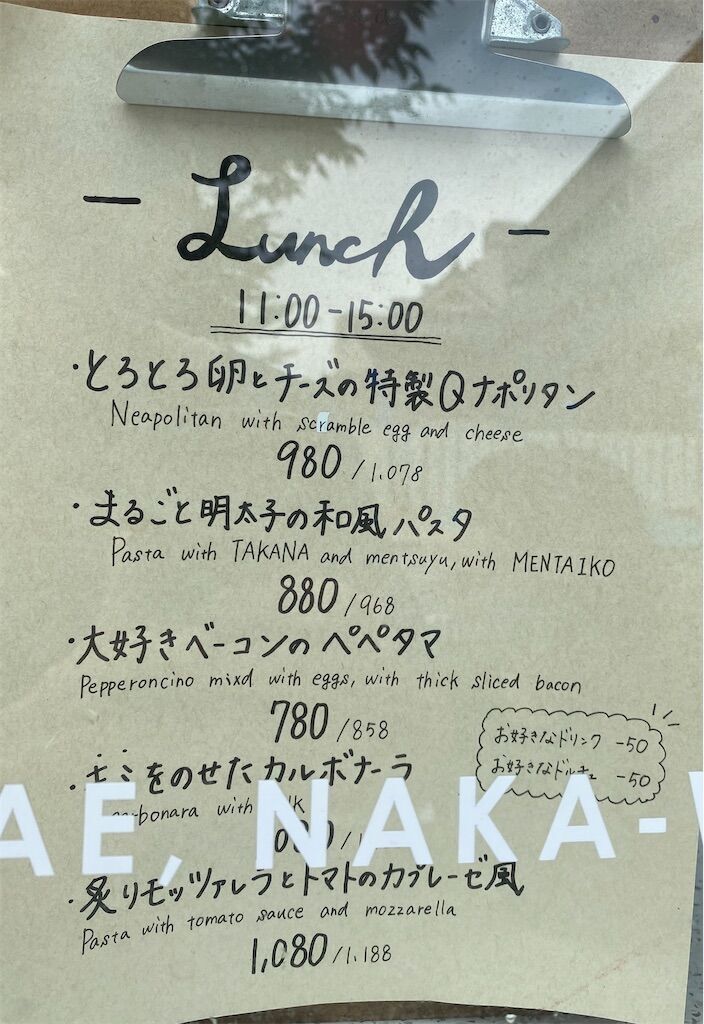 - Lunch -
11:00-15:00
・とろとろ卵とチーズの特製Qナポリタン
Neapolitan with scramble egg and cheese
980/1,078
・まるごと明太子の和風パスタ
Pasta with TAKANA and mentsuyu, with MENTAIKO
880/968
・大好きベーコンのペペタマ
Pepperoncino mixd with eggs, with thick sliced bacon
780/858
お好きなドリンク -50
お好きなドルチェ -50
をのせたカルボナーラ
with
AE, NAKA-
・炙りモッツァレラとトマトのカプレーゼ風
Pasta with tomato sauce and mozzarella
1,080/1,188